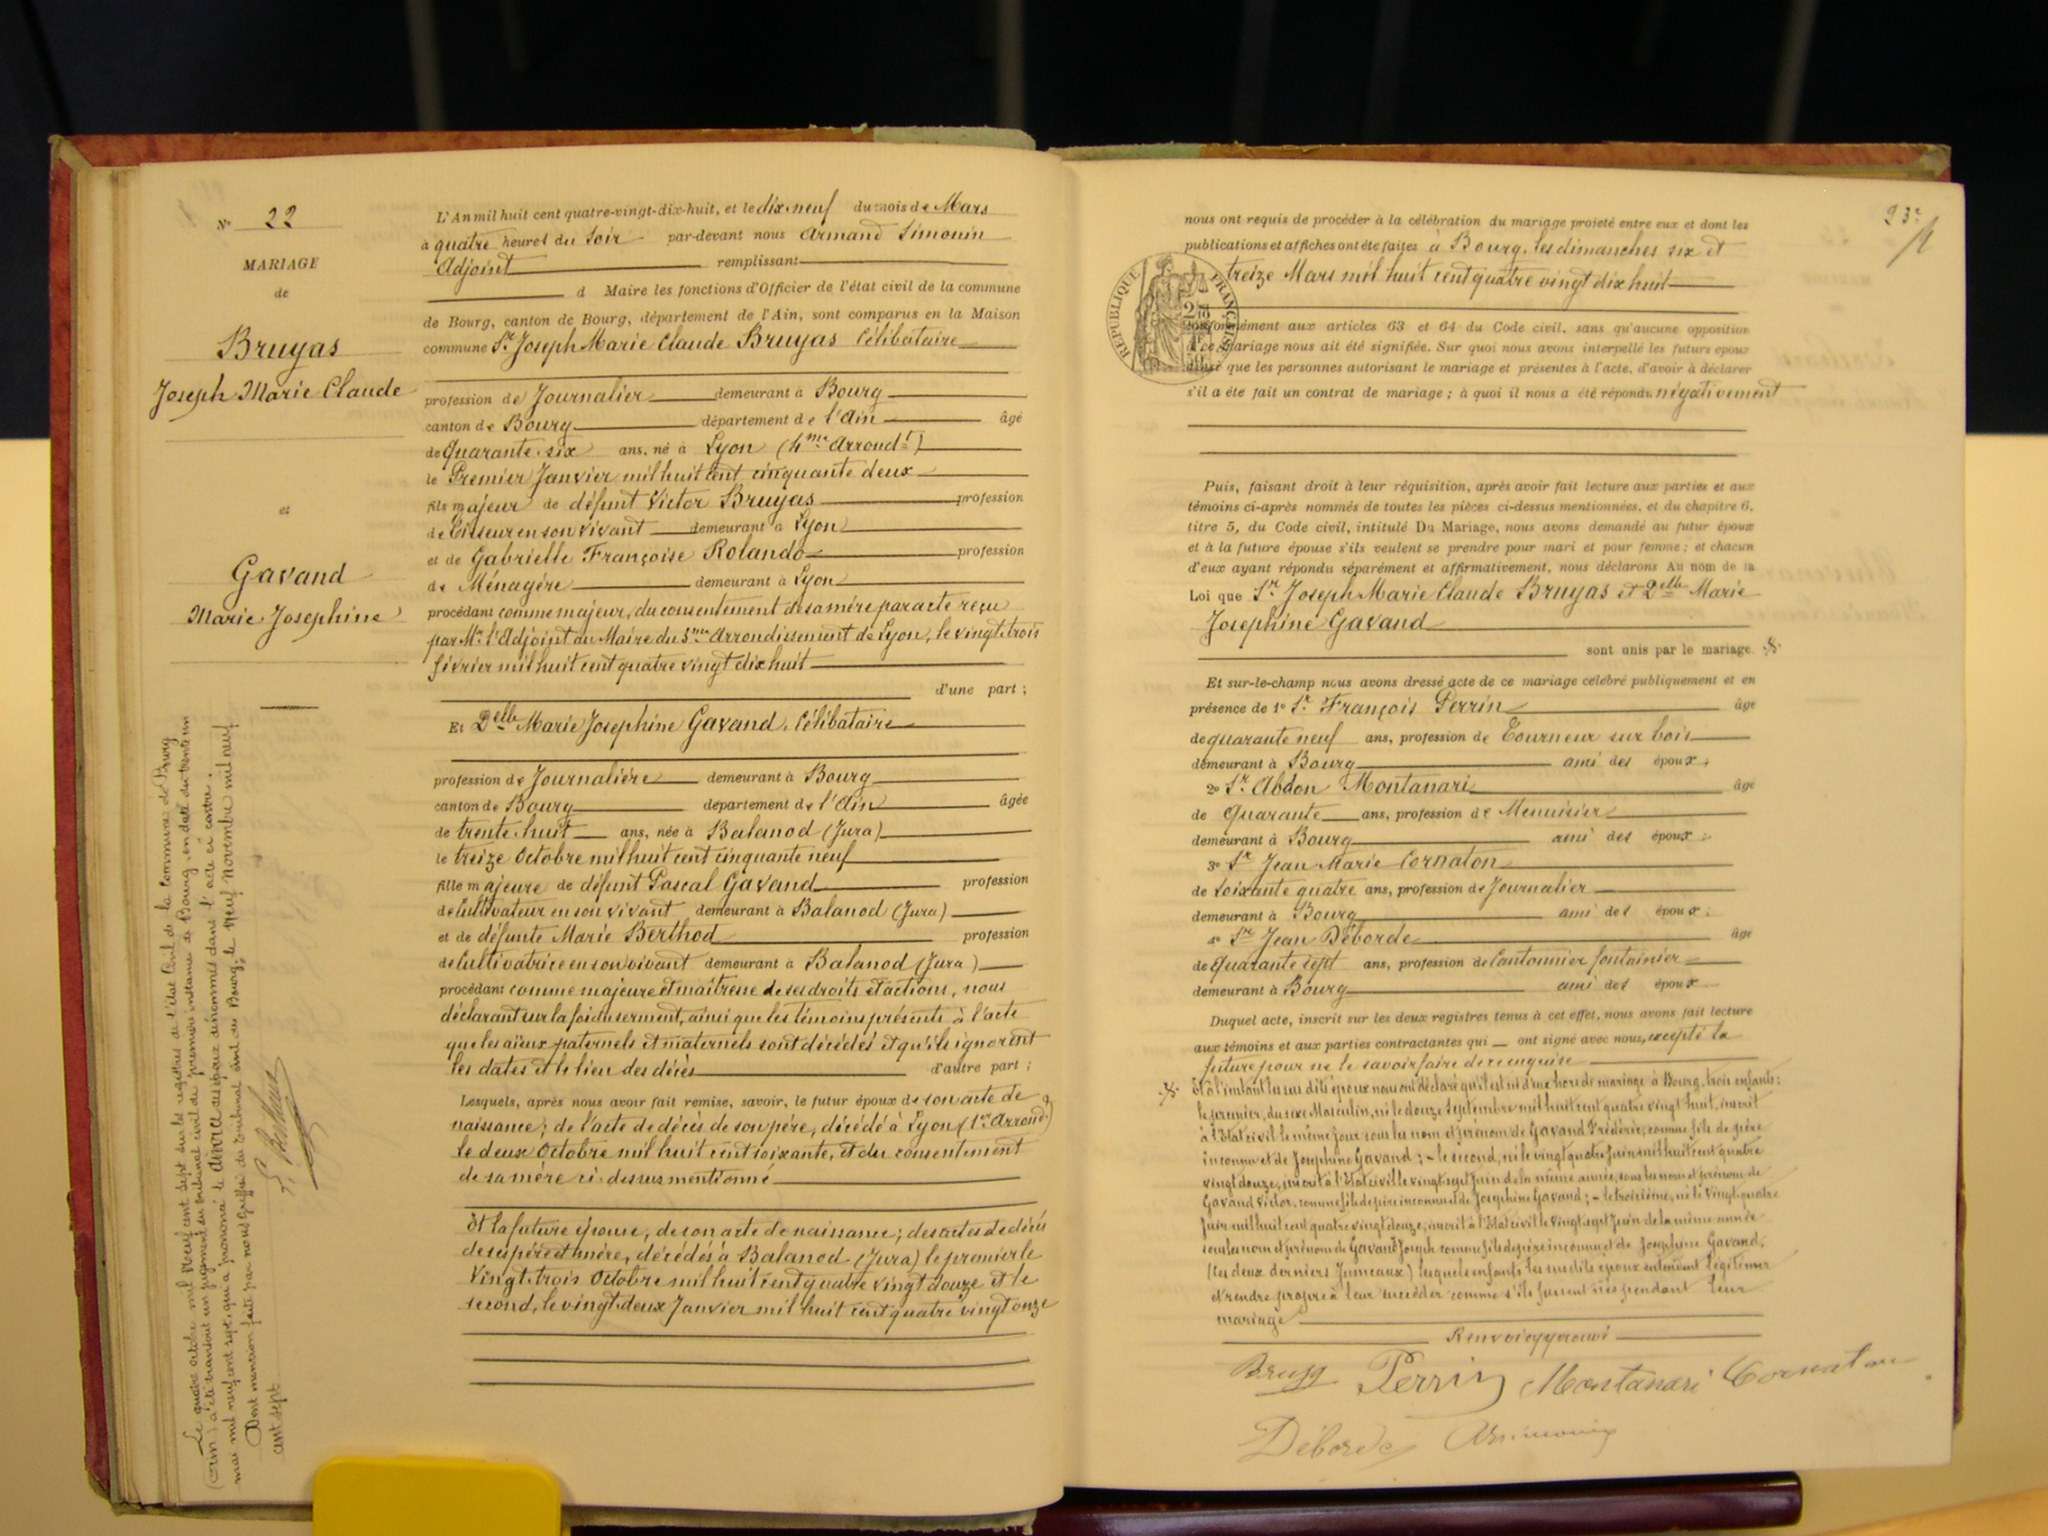 N° 22
MARIAGE
de
Bruyas
Joseph Marie Claude
et
Gavand
Marie Josephine
Le quatre octobre mil neuf cent sept sur les registres de l'état civil de la commune de Bourg
(Ain) a été transcrit un jugement du tribunal civil de première instance de Bourg, en date du trente un
mai mil neuf cent sept, qui a prononcé le divorce des époux dénommés dans l'acte ci contre.
Dont mention faite par nous greffier du tribunal civil de Bourg, le neuf novembre mil neuf
cent sept
L'An mil huit cent quatre-vingt-dix-huit, et le dix neuf du mois de Mars
à quatre heures du soir par-devant nous Armand Simonin
Adjoint remplissant
d Maire les fonctions d'Officier de l'état civil de la commune
de Bourg, canton de Bourg, département de l'Ain, sont comparus en la Maison
commune Sr. Joseph Marie Claude Bruyas Célibataire
profession de Journalier demeurant à Bourg
canton de Bourg département de l'Ain âgé
de quarante six ans, né à Lyon (4me Arrondt)
le Premier Janvier mil huit cent cinquante deux
fils majeur de défunt Victor Bruyas profession
de Tisseur en son vivant demeurant à Lyon
et de Gabrielle Françoise Rolando profession
de Ménagère demeurant à Lyon
procédant comme majeur, du consentement de sa mère par acte reçu
par Mr. l'Adjoint au Maire du 5me Arrondissement de Lyon, le vingt trois
février mil huit cent quatre vingt dix huit
d'une part ;
Et Delle Marie Josephine Gavand, Célibataire
profession de Journalière demeurant à Bourg
canton de Bourg département de l'Ain âgée
de trente huit ans, née à Balanod (Jura)
le treize Octobre mil huit cent cinquante neuf
fille majeure de défunt Pascal Gavand profession
de Cultivateur en son vivant demeurant à Balanod (Jura)
et de défunte Marie Berthod profession
de Cultivatrice en son vivant demeurant à Balanod (Jura)
procédant comme majeure et maîtresse de ses droits et actions, nous
déclarant sur la foi du serment, ainsi que les témoins présents à l'acte
que les aïeux paternels et maternels sont décédés et qu'ils ignorent
les dates et le lieu des décès d'autre part ;
Lesquels, après nous avoir fait remise, savoir, le futur époux de son acte de
naissance ; de l'acte de décès de son père, décédé à Lyon (1er Arrond)
le deux Octobre mil huit cent soixante, et du consentement
de sa mère ci dessus mentionné
Et la future épouse, de son acte de naissance ; des actes de décès
de ses père et mère, décédés à Balanod (Jura) le premier le
vingt trois Octobre mil huit cent quatre vingt douze et le
second, le vingt deux Janvier mil huit cent quatre vingt onze
23e
nous ont requis de procéder à la célébration du mariage projeté entre eux et dont les
publications et affiches ont été faites à Bourg, les dimanches six et
treize Mars mil huit cent quatre vingt dix huit
RÉPUBLIQUE FRANÇAISE
conformément aux articles 63 et 64 du Code civil, sans qu'aucune opposition
à ce mariage nous ait été signifiée. Sur quoi nous avons interpellé les futurs époux
ainsi que les personnes autorisant le mariage et présentes à l'acte, d'avoir à déclarer
s'il a été fait un contrat de mariage ; à quoi il nous a été répondu négativement
Puis, faisant droit à leur réquisition, après avoir fait lecture aux parties et aux
témoins ci-après nommés de toutes les pièces ci-dessus mentionnées, et du chapitre 6,
titre 5, du Code civil, intitulé Du Mariage, nous avons demandé au futur époux
et à la future épouse s'ils veulent se prendre pour mari et pour femme ; et chacun
d'eux ayant répondu séparément et affirmativement, nous déclarons Au nom de la
Loi que Sr. Joseph Marie Claude Bruyas et Delle Marie
Josephine Gavand
sont unis par le mariage.
Et sur-le-champ nous avons dressé acte de ce mariage célébré publiquement et en
présence de 1° Sr. François Perrin âgé
de quarante neuf ans, profession de Tourneur sur bois
demeurant à Bourg ami des époux ;
2° Sr. Abdon Montanari âgé
de Quarante ans, profession de Menuisier
demeurant à Bourg ami des époux ;
3° Sr. Jean Marie Cornaton
de soixante quatre ans, profession de Journalier
demeurant à Bourg ami des époux ;
4° Sr. Jean Déborde âgé
de quarante sept ans, profession de Cantonnier fontainier
demeurant à Bourg ami des époux
Duquel acte, inscrit sur les deux registres tenus à cet effet, nous avons fait lecture
aux témoins et aux parties contractantes qui ont signé avec nous, excepté la
future pour ne le savoir faire de ce enquise
Et à l'instant les sus dits époux nous ont déclaré qu'il est né d'eux hors de mariage à Bourg, trois enfants :
le premier, du sexe Masculin, né le douze Septembre mil huit cent quatre vingt huit, inscrit
à l'Etat civil le même jour sous les nom et prénom de Gavand Frédéric, comme fils de père
inconnu et de Josephine Gavand ; - le second, né le vingt quatre Juin mil huit cent quatre
vingt douze, inscrit à l'Etat civil le vingt sept Juin de la même année, sous les nom et prénom de
Gavand Victor, comme fils de père inconnu et de Josephine Gavand ; - le troisième, né le vingt quatre
Juin mil huit cent quatre vingt douze, inscrit à l'Etat civil le vingt sept Juin de la même année
sous les nom et prénom de Gavand Joseph comme fils de père inconnu et de Josephine Gavand,
(les deux derniers Jumeaux) lesquels enfants les sus dits époux entendent légitimer
et rendre propre à leur succéder comme s'ils fussent nés pendant leur
mariage
Renvoi approuvé
Bruyas Perrin Montanari Cornaton
Déborde ASimonin